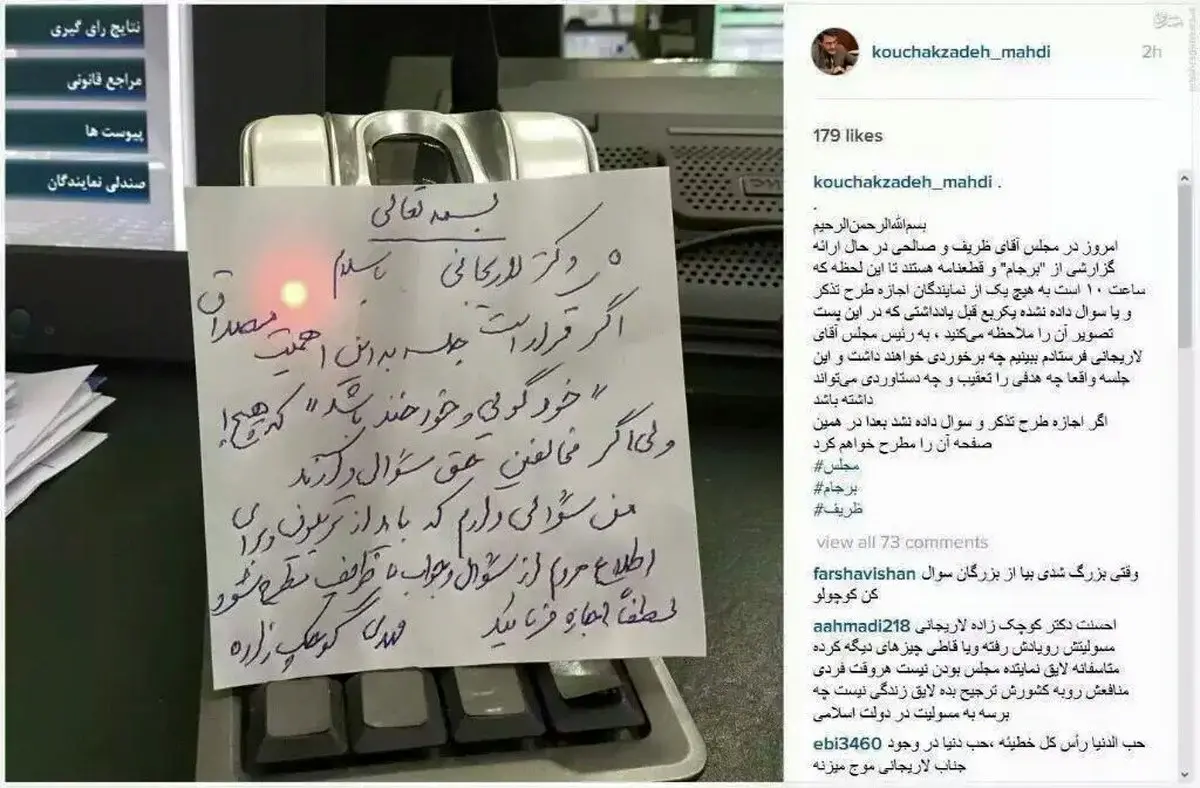 نتایج رای گیری
مراجع قانونی
پیوست ها
صندلی نمایندگان
بسمه تعالی
دکتر لاریجانی با سلام
اگر قرار است جلسه به این اهمیت مصداق
"خود گویی و خود خند باشد" که هیچ!
ولی اگر مخالفین حق سؤال دارند
من سؤالی دارم که باید از تریبون و برای
اطلاع مردم از سؤال و جواب با ظریف مطرح شود
لطفاً اجازه فرمائید مهدی کوچک زاده
kouchakzadeh_mahdi
2h
179 likes
kouchakzadeh_mahdi .
.
بسم‌الله‌الرحمن‌الرحیم
امروز در مجلس آقای ظریف و صالحی در حال ارائه
گزارشی از "برجام" و قطعنامه هستند تا این لحظه که
ساعت ۱۰ است به هیچ یک از نمایندگان اجازه طرح تذکر
و یا سوال داده نشده یکربع قبل یادداشتی که در این پست
تصویر آن را ملاحظه می‌کنید ، به رئیس مجلس آقای
لاریجانی فرستادم ببینیم چه برخوردی خواهند داشت و این
جلسه واقعا چه هدفی را تعقیب و چه دستاوردی می‌تواند
داشته باشد
اگر اجازه طرح تذکر و سوال داده نشد بعدا در همین
صفحه آن را مطرح خواهم کرد
#مجلس
#برجام
#ظریف
view all 73 comments
farshavishan وقتی بزرگ شدی بیا از بزرگان سوال
کن کوچولو
aahmadi218 احسنت دکتر کوچک زاده لاریجانی
مسولیتش رویادش رفته ویا قاطی چیزهای دیگه کرده
متاسفانه لایق نماینده مجلس بودن نیست هروقت فردی
منافعش روبه کشورش ترجیح بده لایق زندگی نیست چه
برسه به مسولیت در دولت اسلامی
ebi3460 حب الدنیا رأس کل خطیئه ،حب دنیا در وجود
جناب لاریجانی موج میزنه